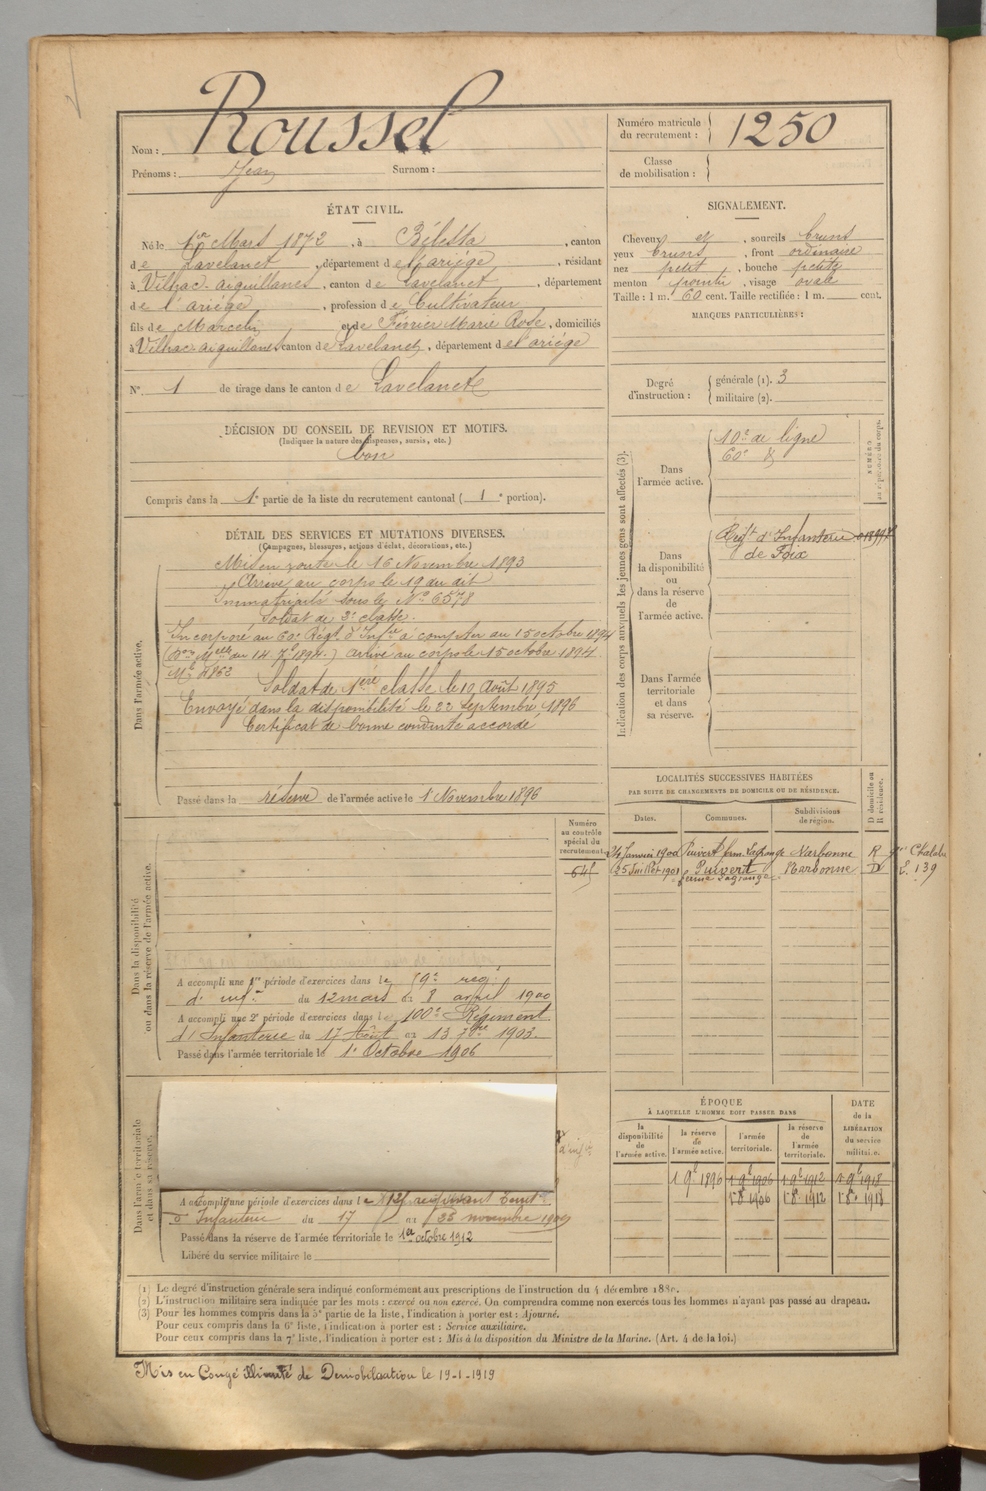 Nom : Roussel
Prénoms : Jean Surnom :
Numéro matricule
du recrutement : 1250
Classe
de mobilisation :
ÉTAT CIVIL.
Né le 1er Mars 1872, à Bélesta, canton
de Lavelanet, département de l'ariége, résidant
à Vilhac-aiguillanes, canton de Lavelanet, département
de l'ariége, profession de Cultivateur
fils de Marcelin et de Ferrier Marie Rose, domiciliés
à Vilhac-aiguillanes canton de Lavelanet, département de l'ariége
N° 1 de tirage dans le canton de Lavelanet
SIGNALEMENT.
Cheveux et, sourcils bruns
yeux bruns, front ordinaire
nez petit, bouche petite
menton pointu, visage ovale
Taille : 1 m. 60 cent. Taille rectifiée : 1 m. cent.
MARQUES PARTICULIÈRES :
Degré
d'instruction :
générale (1). 3
militaire (2).
DÉCISION DU CONSEIL DE REVISION ET MOTIFS.
(Indiquer la nature des dispenses, sursis, etc.)
bon
Compris dans la 1e partie de la liste du recrutement cantonal (1e portion).
DÉTAIL DES SERVICES ET MUTATIONS DIVERSES.
(Campagnes, blessures, actions d'éclat, décorations, etc.)
Dans l'armée active.
Mis en route le 16 Novembre 1893
Arrivé au corps le 19 du dit
Immatriculé sous le No 6578
Soldat de 2e classe.
Incorporé au 60e Régt d'Inftie à compter du 15 octobre 1894
arrivé au corps le 15 octobre 1894
Mle 4862
Soldat de 1ère classe le 10 Août 1895
Envoyé dans la disponibilité le 22 septembre 1896
Certificat de bonne conduite accordé
Passé dans la réserve de l'armée active le 1 Novembre 1896
Indication des corps auxquels les jeunes gens sont affectés (3).
Dans
l'armée active.
10e de ligne
60e
NUMÉRO
au répertoire du corps.
Dans
la disponibilité
ou
dans la réserve
de
l'armée active.
Régt d'Infanterie
de Foix
Dans l'armée
territoriale
et dans
sa réserve.
LOCALITÉS SUCCESSIVES HABITÉES
PAR SUITE DE CHANGEMENTS DE DOMICILE OU DE RÉSIDENCE.
Dates. Communes. Subdivisions
de région. D domicile ou
R résidence.
24 Janvier 1900 Puivert ferm. Lagrange Narbonne R
25 Juillet 1901 Puivert Narbonne D 139
ferme Lagrange
Dans la disponibilité
ou dans la réserve de l'armée active.
Numéro
au contrôle
spécial du
recrutement.
645
A accompli une 1re période d'exercices dans le 59e reg.t
d'inf.ie du 12 mars au 8 avril 1900
A accompli une 2e période d'exercices dans le 100e Régiment
d'Infanterie du 17 Août au 13 7bre 1903.
Passé dans l'armée territoriale le 1er Octobre 1906
Dans l'armée territoriale
et dans sa réserve.
A accompli une période d'exercices dans le
d'Infanterie du 17 au 25 novembre
Passé dans la réserve de l'armée territoriale le 1er octobre 1912
Libéré du service militaire le
ÉPOQUE
À LAQUELLE L'HOMME DOIT PASSER DANS
la
disponibilité
de
l'armée active.
la réserve
de
l'armée active.
l'armée
territoriale.
la réserve
de
l'armée
territoriale.
DATE
de la
LIBÉRATION
du service
militaire.
1 9b 1896 1 9b 1906 1 9b 1912 1 9b 1918
1 8b 1906 1 8b 1912 1 8b 1918
(1) Le degré d'instruction générale sera indiqué conformément aux prescriptions de l'instruction du 4 décembre 1889.
(2) L'instruction militaire sera indiquée par les mots : exercé ou non exercé. On comprendra comme non exercés tous les hommes n'ayant pas passé au drapeau.
(3) Pour les hommes compris dans la 5e partie de la liste, l'indication à porter est : Ajourné.
Pour ceux compris dans la 6e liste, l'indication à porter est : Service auxiliaire.
Pour ceux compris dans la 7e liste, l'indication à porter est : Mis à la disposition du Ministre de la Marine. (Art. 4 de la loi.)
Mis en Congé illimité de Demobilisation le 19-1-1919